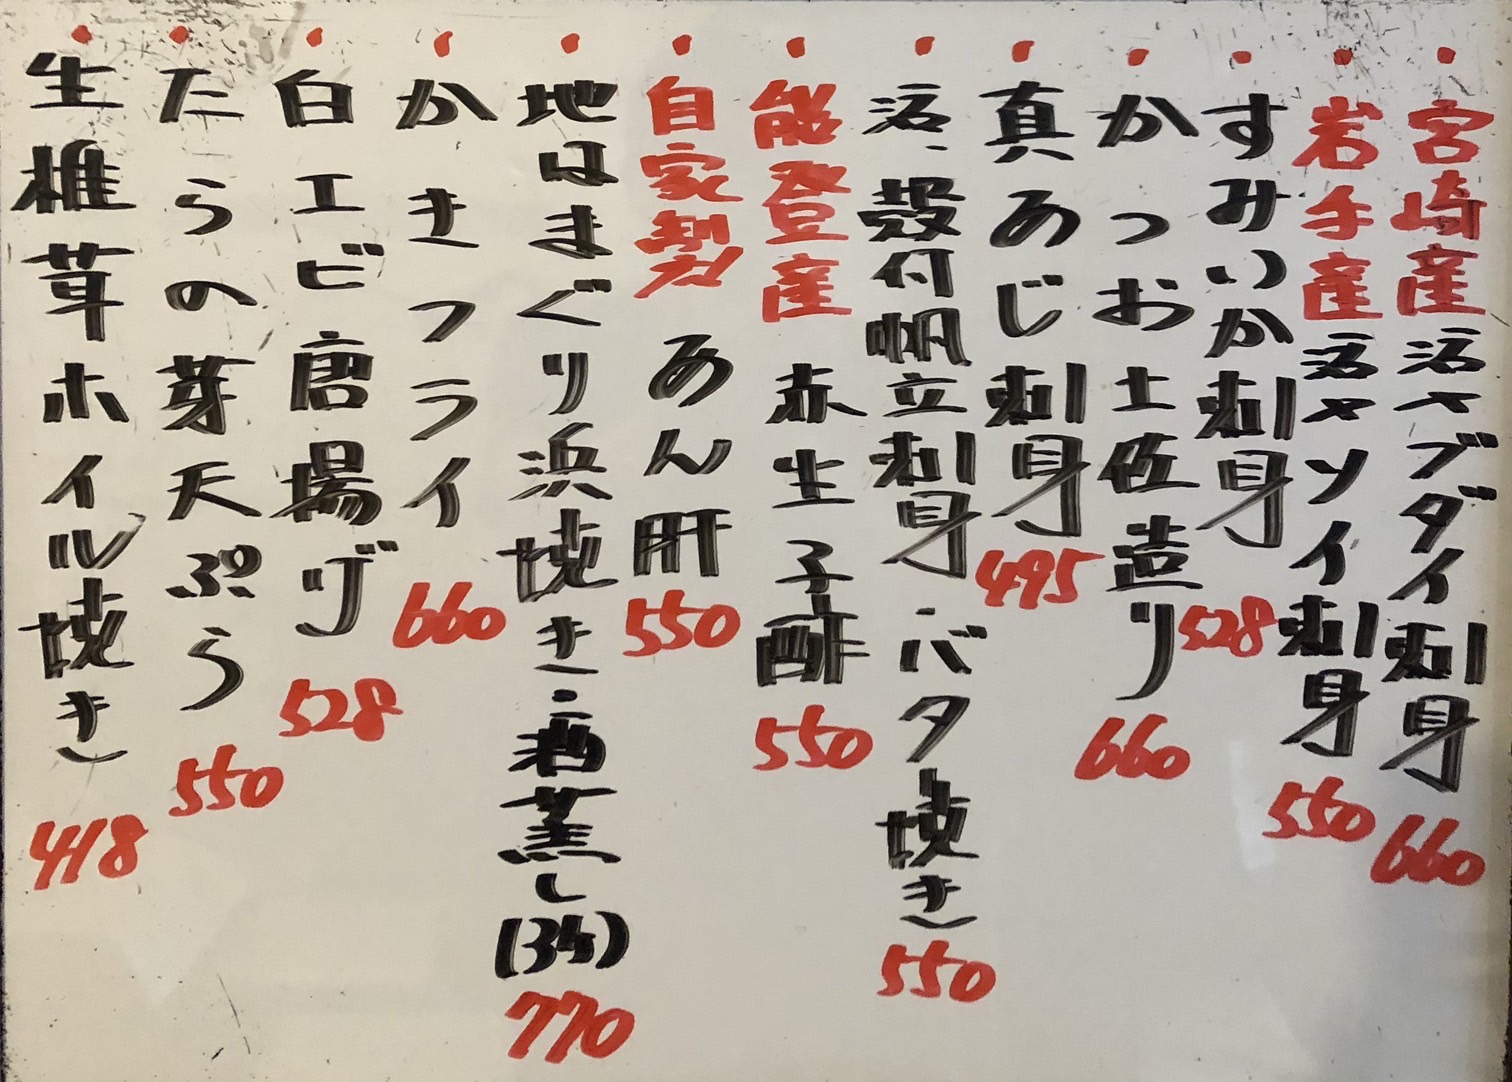 ・宮崎産活〆ブダイ刺身 660
・岩手産活〆ソイ刺身 550
・すみいか刺身 528
・かつお土佐造り 660
・真あじ刺身 495
・活、殻付帆立刺身・バタ焼き 550
・能登産 赤生子酢 550
・自家製 あん肝 550
・地はまぐり浜焼き・酒蒸し(3ケ) 770
・かきフライ 660
・白エビ唐揚げ 528
・たらの芽天ぷら 550
・生椎茸ホイル焼き 418